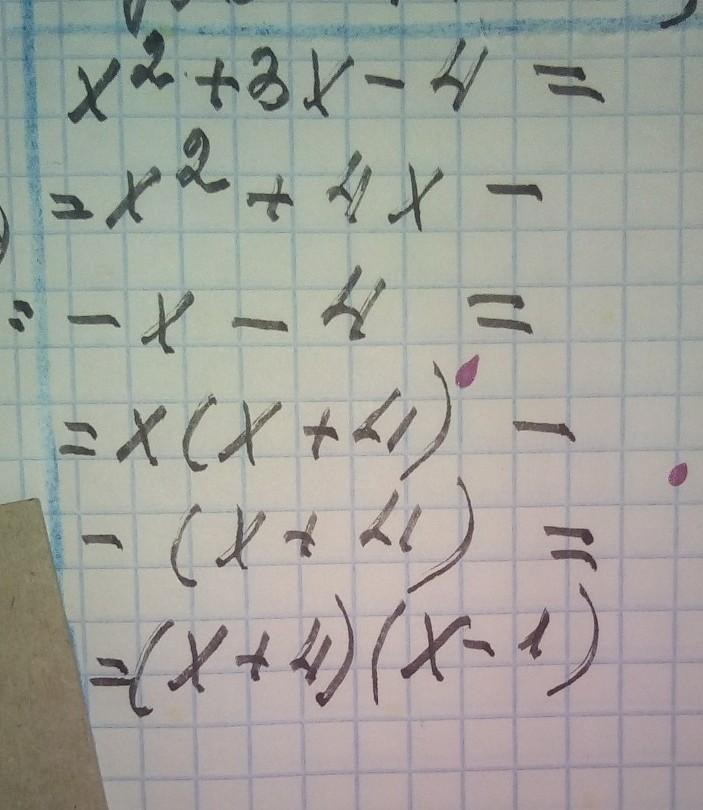 x² + 3x - 4 =
= x² + 4x -
- x - 4 =
= x(x + 4) -
- (x + 4) =
= (x + 4)(x - 1)